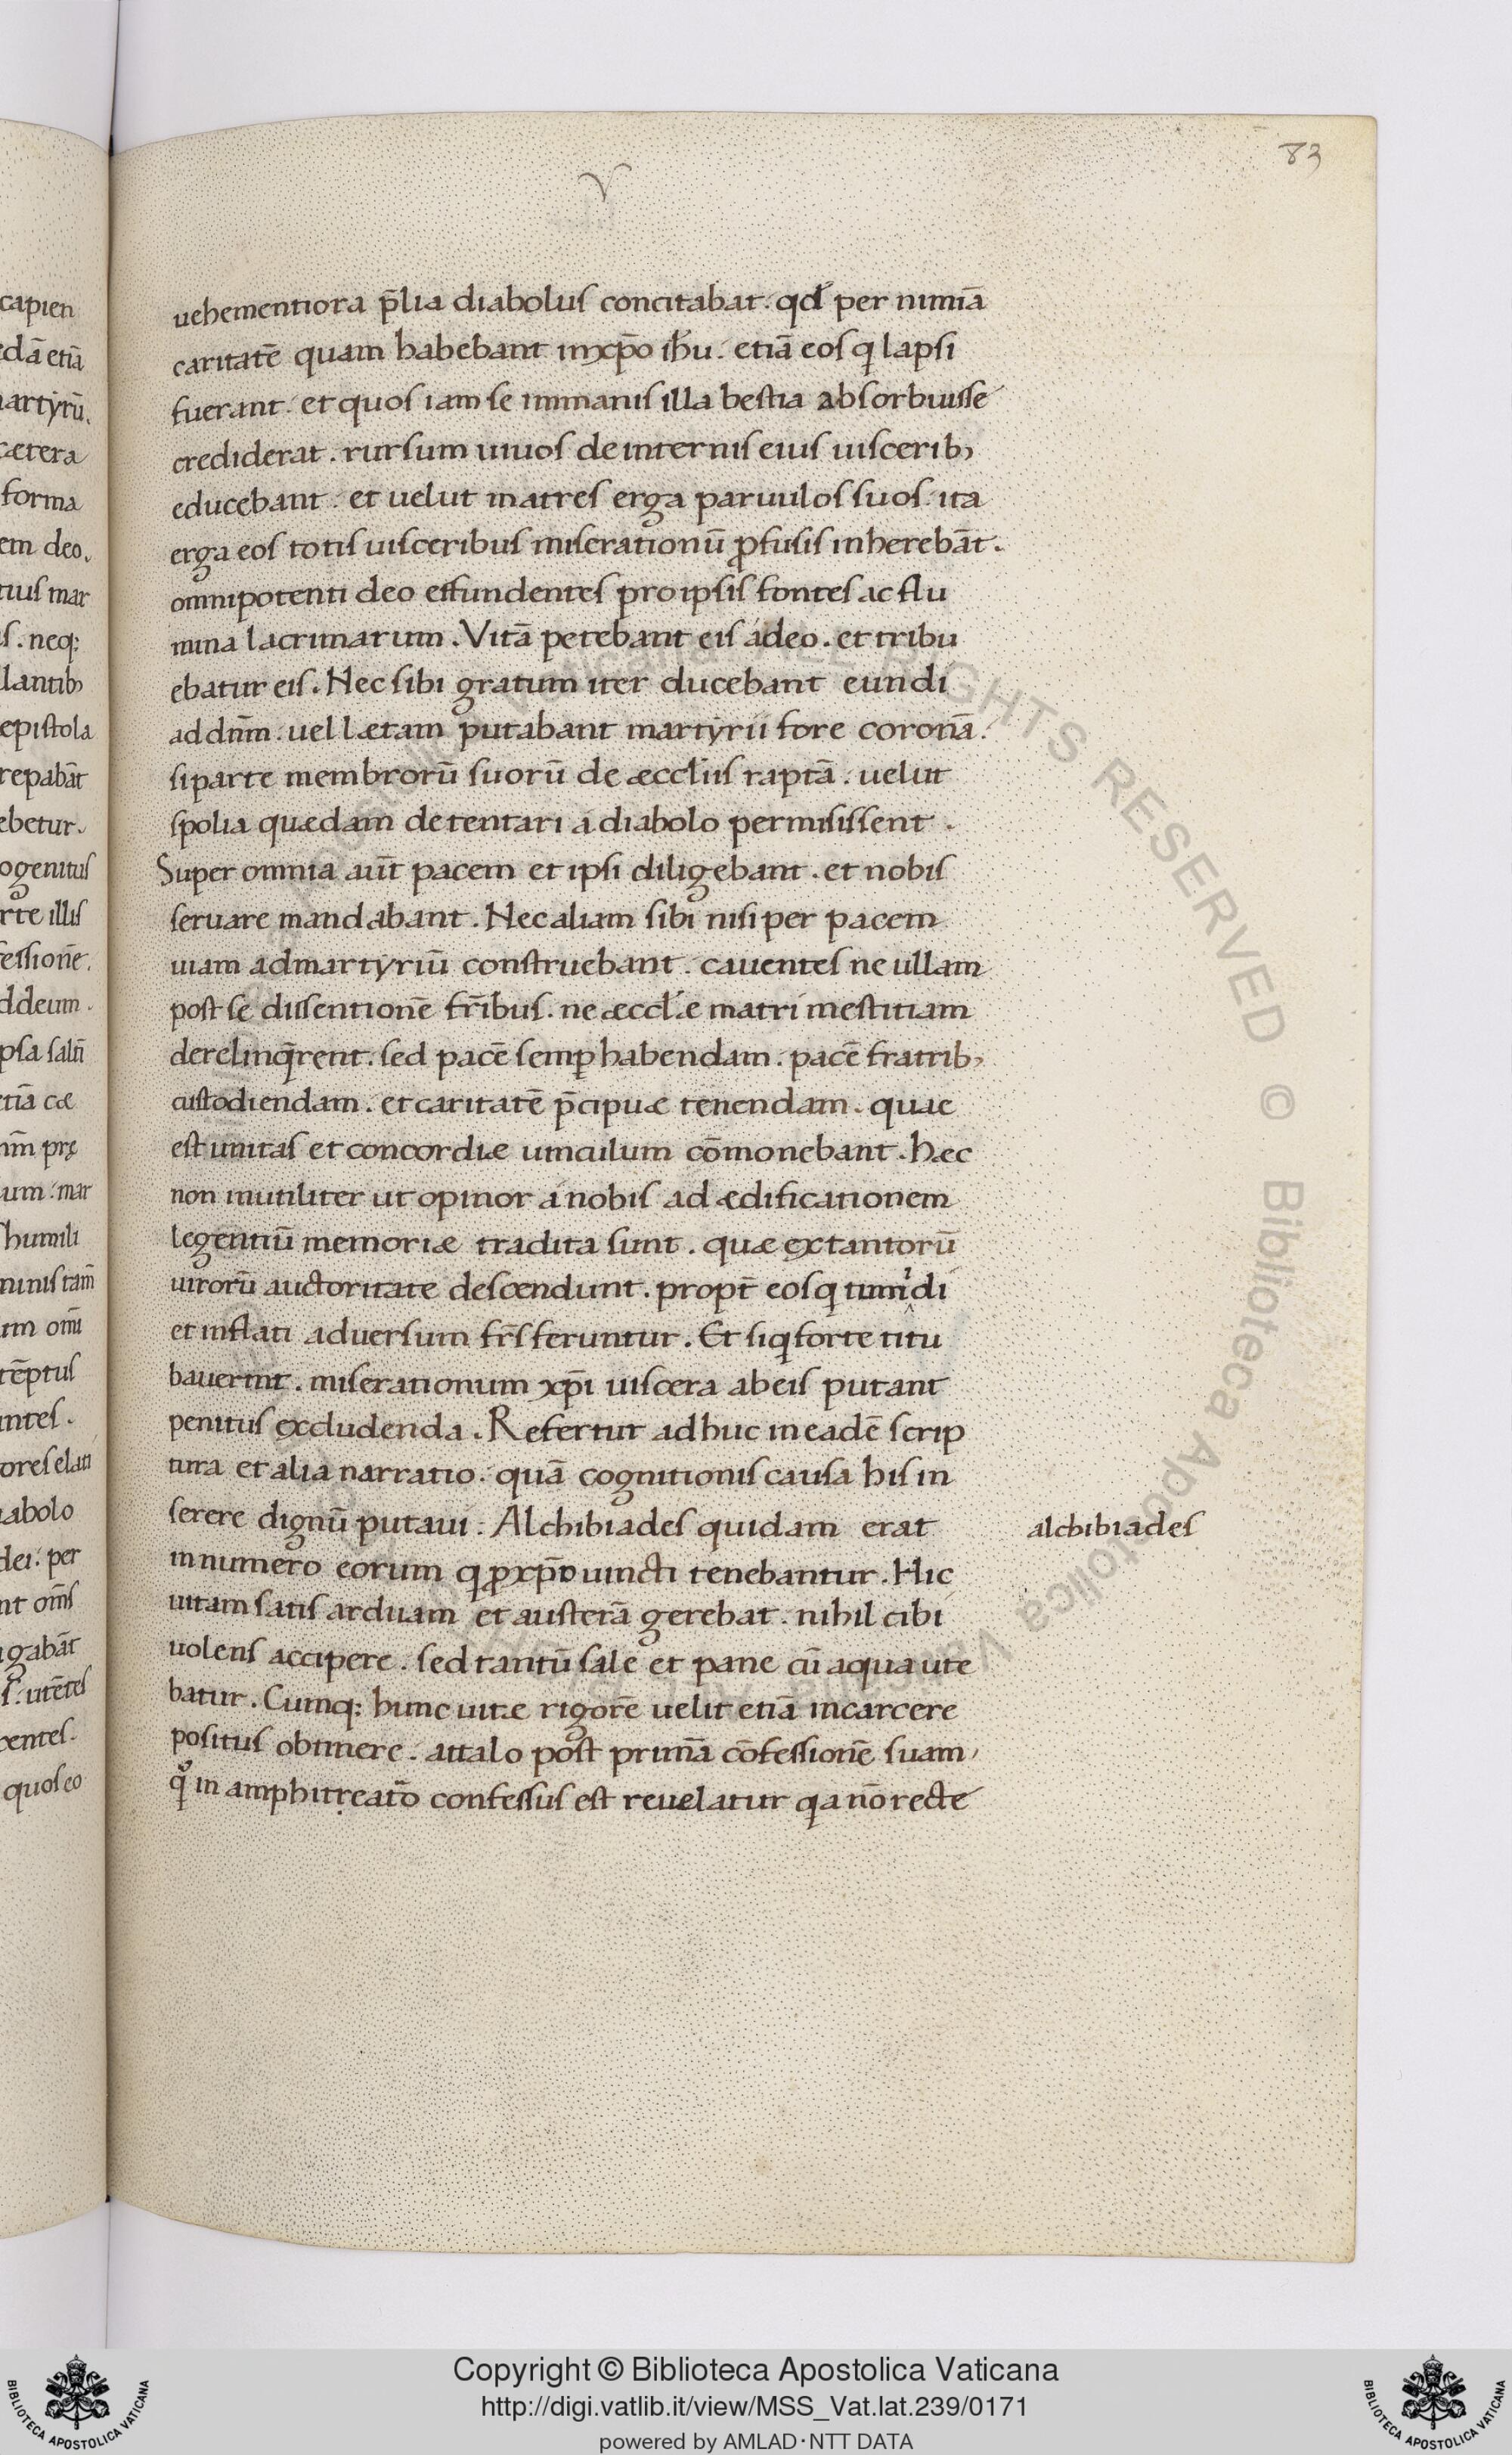 83
V
uehementiora p̄lia diabolus concitabat. qd̄ per nimiā
caritatē quam habebant inxp̄o ih̄u. etiā eos q lapsi
fuerant. et quos iam se immanis illa bestia absorbuisse
crediderat. rursum uiuos de internis eius uiscerib;
educebant. et uelut matres erga paruulos suos. ita
erga eos totis uisceribus miserationū ꝓfusis inherebāt.
omnipotenti deo effundentes pro ipsis fontes ac flu
mina lacrimarum. Vitā petebant eis adeo. et tribu
ebatur eis. Nec sibi gratum iter ducebant eundi
ad dn̄m. uel lætam putabant martyrii fore coronā.
si parte membrorū suorū de æccl̄iis raptā. uelut
spolia quædam detentari a diabolo permisissent.
Super omnia aūt pacem et ipsi diligebant. et nobis
seruare mandabant. Nec aliam sibi nisi per pacem
uiam ad martyriū construebant. cauentes ne ullam
post se dissentionē fr̄ibus. ne æccl̄æ matri mestitiam
derelinq̄rent. sed pacē semꝑ habendam. pacē fratrib;
custodiendam. et caritatē p̄cipuæ tenendam. quae
est unitas et concordiæ uinculum cōmonebant. hæc
non inutiliter ut opinor a nobis ad ædificationem
legentiū memoriæ tradita sunt. quæ ex tantorū
uirorū auctoritate descendunt. propt̄ eos q tumidi
et inflati aduersum fr̄s feruntur. Et si q forte titu
bauerint. miserationum xp̄i uiscera ab eis putant
penitus excludenda. Refertur adhuc in eadē scrip
tura et alia narratio. quā cognitionis causa his in
serere dignū putaui. Alchibiades quidam erat
alchibiades
in numero eorum q ꝓ xp̄o uincti tenebantur. Hic
uitam satis arduam et austerā gerebat. nihil cibi
uolens accipere. sed tantū sale et pane cū aqua ute
batur. Cumq; hunc uitæ rigorē uelit etiā incarcere
positus obtinere. attalo post primā cōfessionē suam,
qͦ in amphitreatro confessus est reuelatur qa nō recte
capien
edā etiā
martyrū.
cætera
forma
em deo.
tius mar
s. neq;
llantib;
epistola
repabāt
ebetur.
ogenitus
rte illis
fessionē.
ddeum.
psa salt̄
tiā cæ
um. mar
humili
abolo
dei. per
igabāt
quos eo
VATICANA ALL RIGHTS RESERVED © Biblioteca Apostolica Vaticana
BIBLIOTECA APOSTOLICA VATICANA
Copyright © Biblioteca Apostolica Vaticana
http://digi.vatlib.it/view/MSS_Vat.lat.239/0171
powered by AMLAD·NTT DATA
BIBLIOTECA APOSTOLICA VATICANA